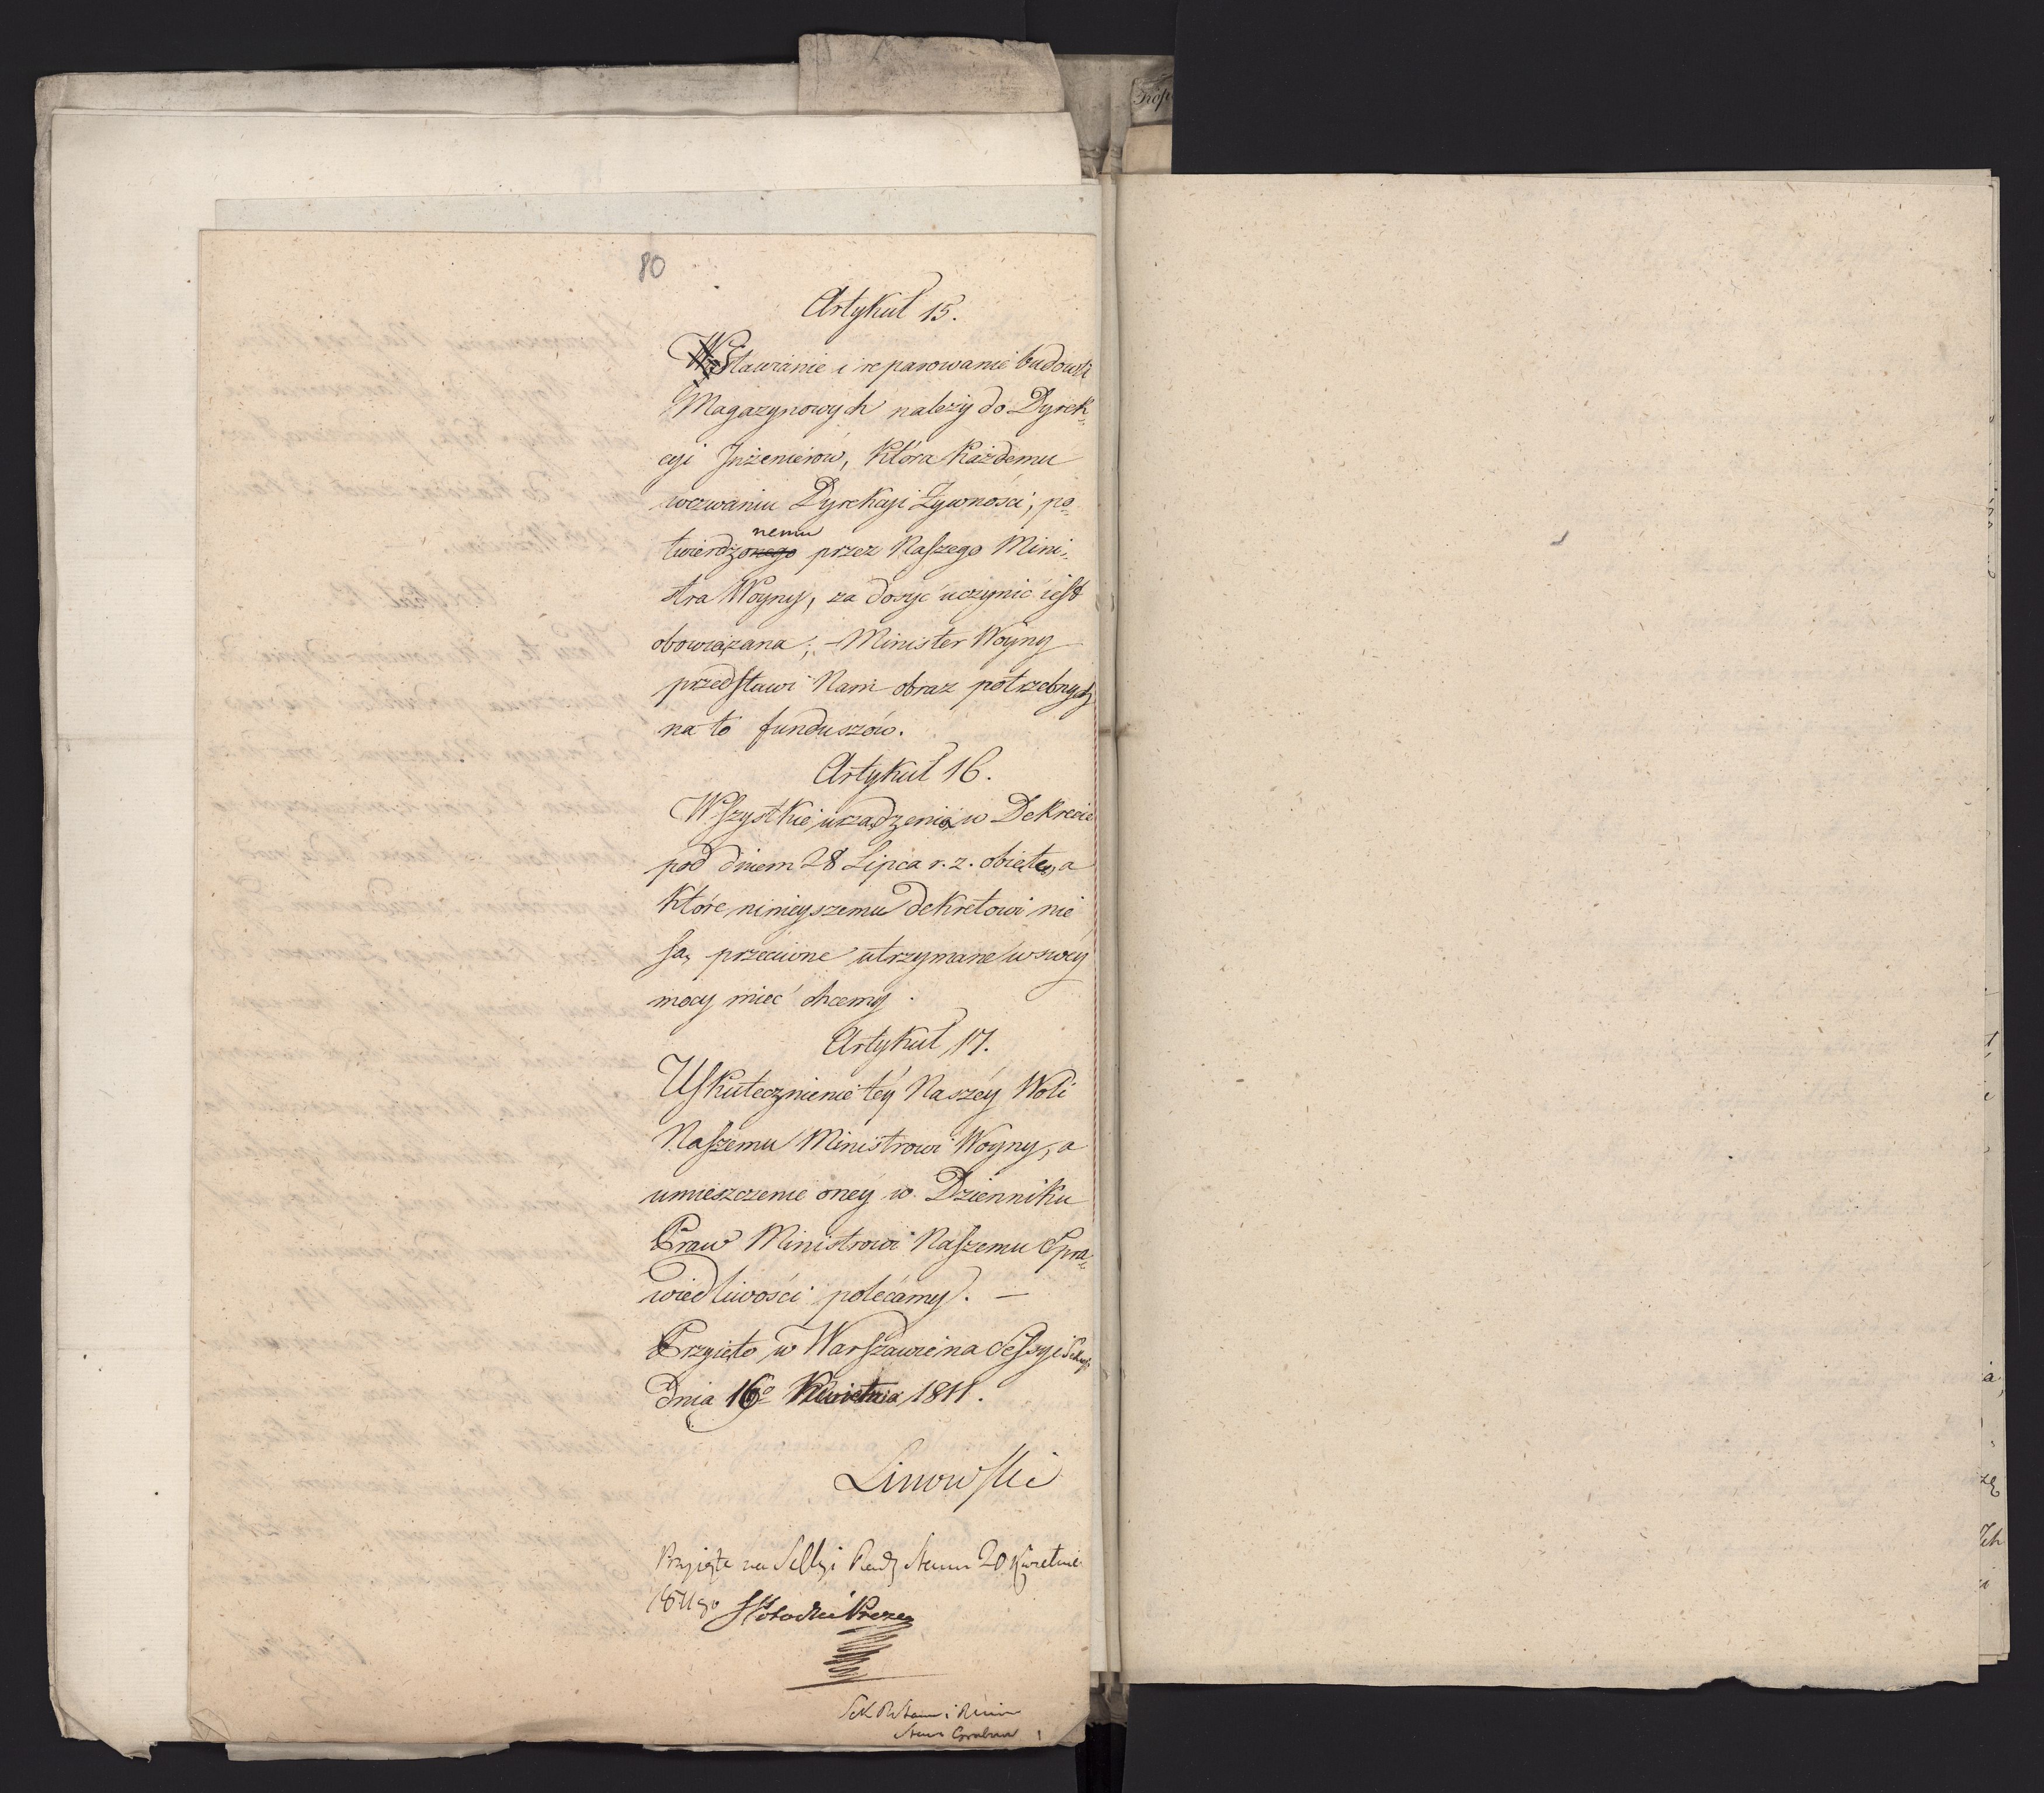 80
Artykuł 15.
Stawianie i reparowanie budowli
Magazynowych należy do Dyrek-
cyi Inżenierów, która każdemu
wezwaniu Dyrekcyi Żywności, po-
nemu
twierdzonego przez Naszego Mini-
stra Woyny, za dosyć uczynić iest
obowiązana; – Minister Woyny
przedstawi Nam obraz potrzebnych
na to funduszów.
Artykuł 16.
Wszystkie urządzenia w Dekrecie
pod dniem 28 Lipca r. z. obięte, a
które ninieyszemu dekretowi nie
są przeciwne utrzymane w swéy
mocy mieć chcemy.
Artykuł 17.
Uskutecznienie téy Naszéy Woli
Naszemu Ministrowi Woyny, a
umieszczenie onéy w Dzienniku
Praw Ministrowi Naszemu Spra-
wiedliwości polécamy. –
Przyięto w Warszawie na Sessyi
Dnia 16º Kwietnia 1811.
Linowski
Przyięte na Sessyi Rady Stanu 20 Kwietnia
1811go St Potocki Prezes